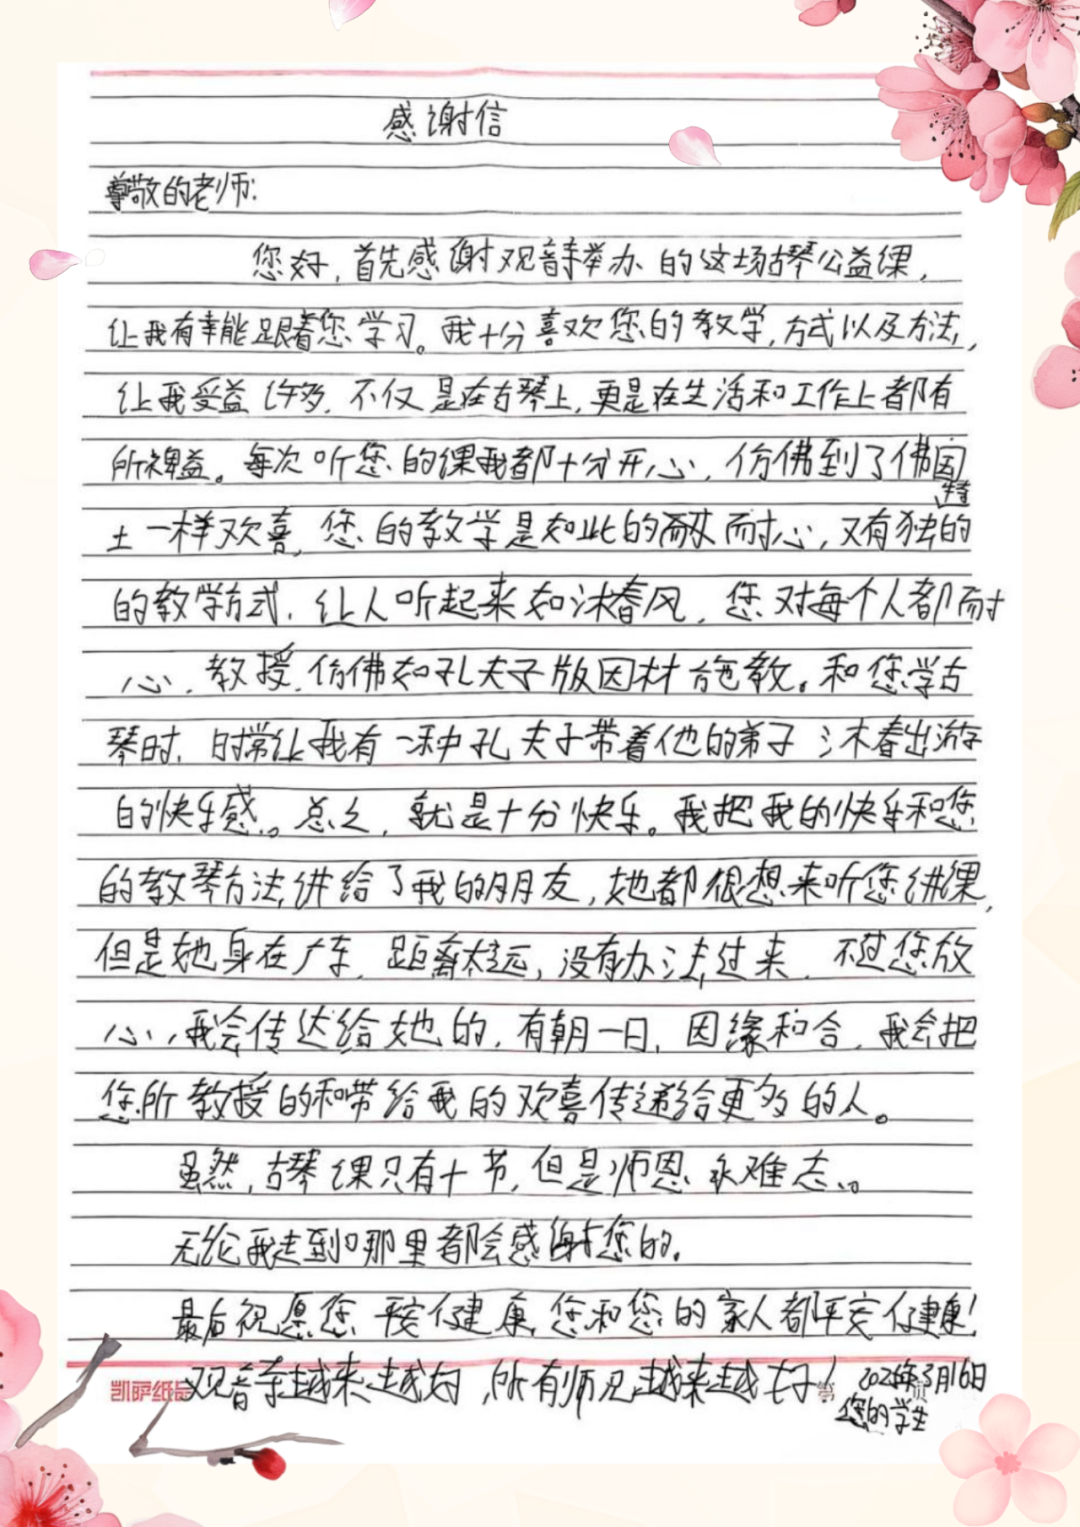 感谢信
尊敬的老师:
您好,首先感谢观音寺举办的这场古琴公益课,
让我有幸能跟着您学习。我十分喜欢您的教学,方式以及方法,
让我受益许多,不仅是在古琴上,更是在生活和工作上都有
所裨益。每次听您的课我都十分开心,仿佛到了佛国
土一样欢喜,您的教学是如此的耐心,又有独特的
的教学方式,让人听起来如沐春风,您对每个人都耐
心,教授,仿佛如孔夫子版因材施教。和您学古
琴时,时常让我有一种孔夫子带着他的弟子沐春出游
的快乐感。总之,就是十分快乐。我把我的快乐和您
的教琴方法讲给了我的朋友,她都很想来听您讲课,
但是她身在广东,距离太远,没有办法过来,不过您放
心,我会传达给她的,有朝一日,因缘和合,我会把
您所教授的和带给我的欢喜传递给更多的人。
虽然,古琴课只有十节,但是师恩永难忘。
无论我走到哪里都会感谢您的。
最后祝愿您平安健康,您和您的家人都平安健康!
凯萨纸品 观音寺越来越好,所有师兄越来越好! 2026年3月16日
您的学生